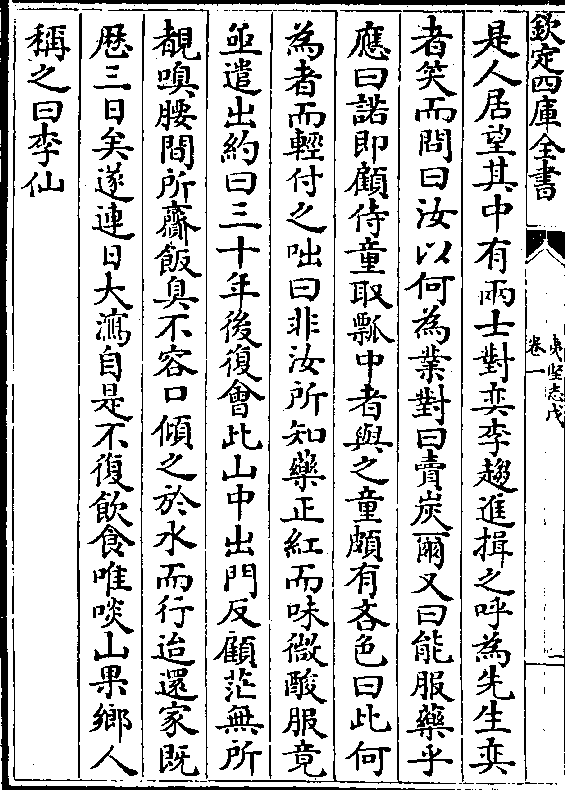 欽定四庫全書
夷堅志戊
卷一
一
是人居望其中有兩士對奕李趨進揖之呼為先生奕
者笑而問曰汝以何為業對曰賣炭爾又曰能服藥乎
應曰諾即顧侍童取瓢中者與之童頗有吝色曰此何
為者而輕付之咄曰非汝所知藥正紅而味微酸服竟
亟遣出約曰三十年後復會此山中出門反顧茫無所
覩嗅腰間所齎飯臭不容口傾之於水而行迨還家既
歴三日矣遂連日大瀉自是不復飲食唯啖山果鄉人
稱之曰李仙